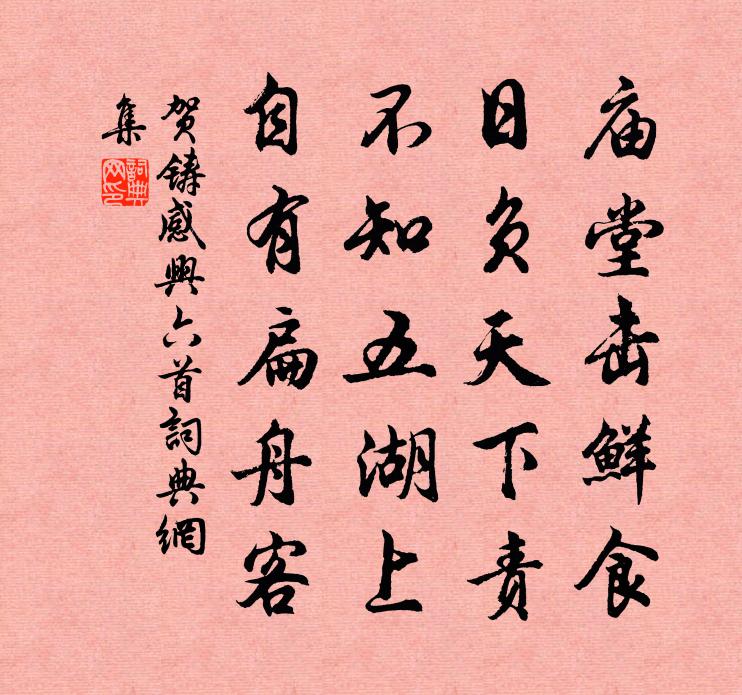 庙堂击鲜食
日负天下责
不知五湖上
自有扁舟客
贺铸感興六首詞典網
集
詞典
网印